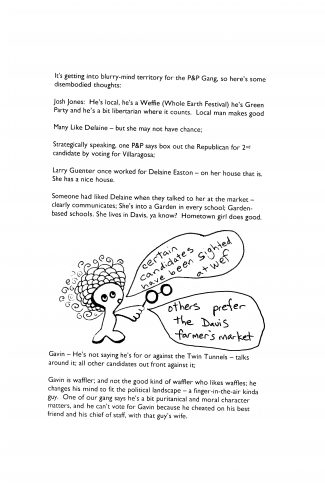 It's getting into blurry-mind territory for the P&P Gang, so here's some
disembodied thoughts:
Josh Jones: He's local, he's a Weffie (Whole Earth Festival) he's Green
Party and he's a bit libertarian where it counts. Local man makes good
Many Like Delaine – but she may not have chance;
Strategically speaking, one P&P says box out the Republican for 2nd
candidate by voting for Villaragosa;
Larry Guenter once worked for Delaine Easton – on her house that is.
She has a nice house.
Someone had liked Delaine when they talked to her at the market –
clearly communicates; She's into a Garden in every school; Garden-
based schools. She lives in Davis, ya know? Hometown girl does good.
certain
candidates
have been sighted
at WEF
others prefer
the Davis
farmer's market
Gavin – He's not saying he's for or against the Twin Tunnels – talks
around it; all other candidates out front against it;
Gavin is waffler; and not the good kind of waffler who likes waffles; he
changes his mind to fit the political landscape – a finger-in-the-air kinda
guy. One of our gang says he's a bit puritanical and moral character
matters, and he can't vote for Gavin because he cheated on his best
friend and his chief of staff, with that guy's wife.